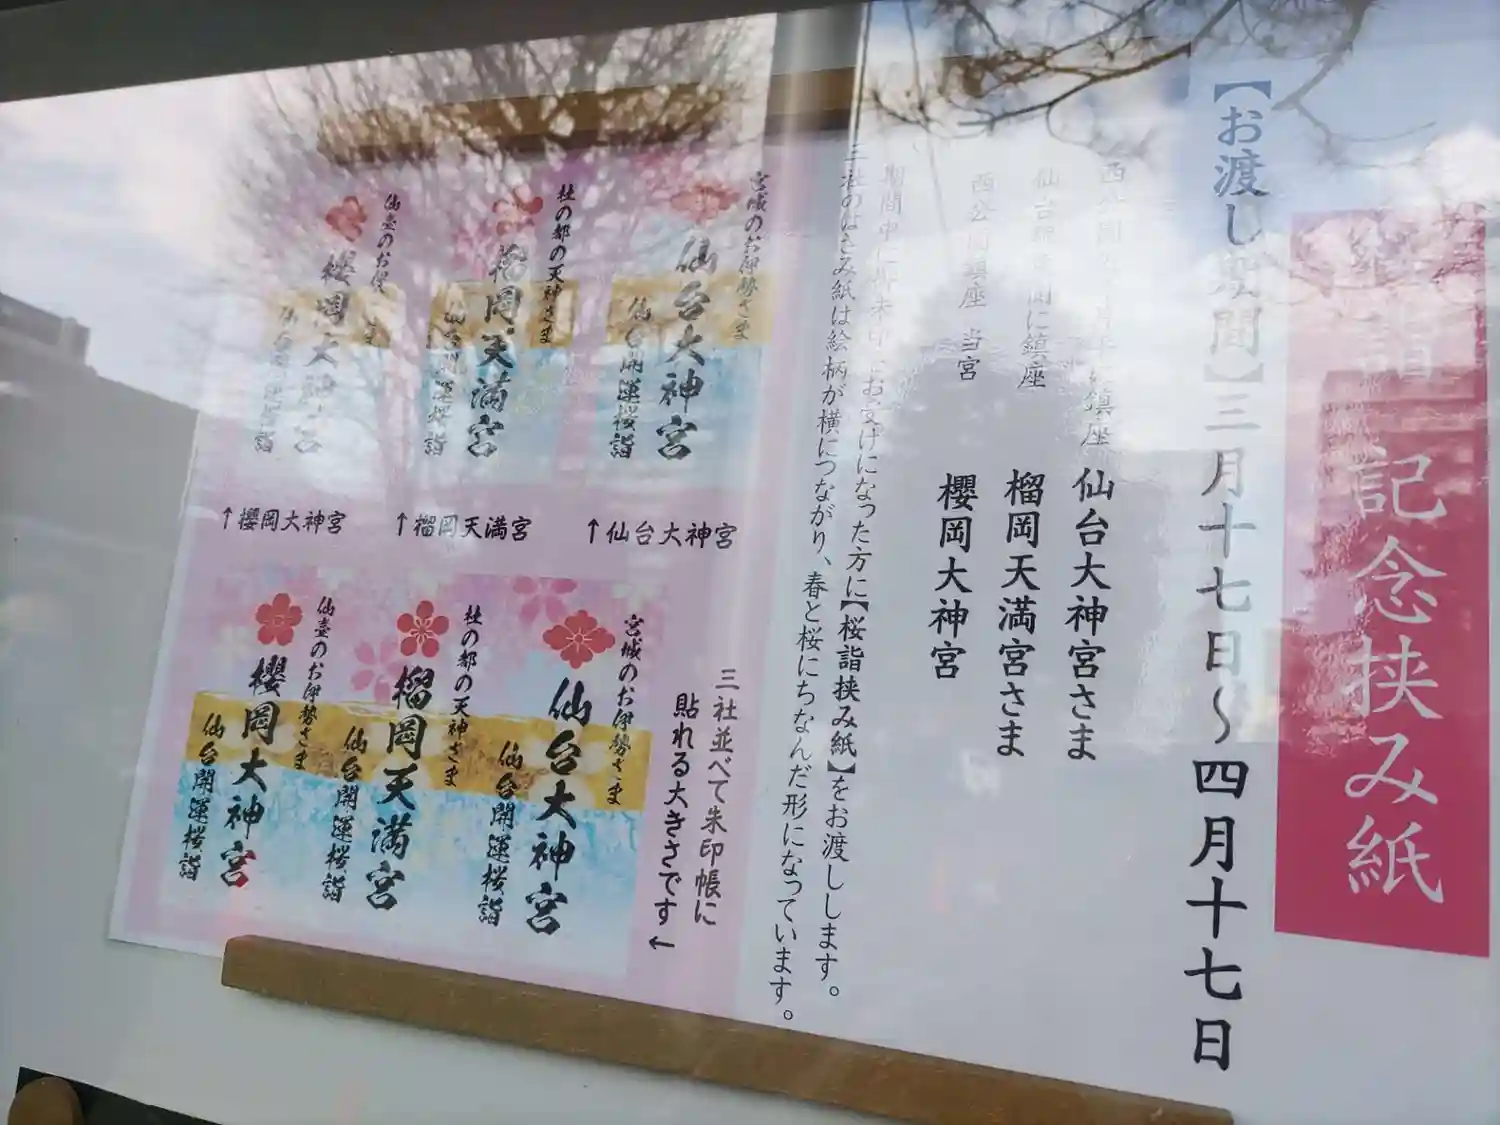 桜詣 記念挟み紙
【お渡し期間】三月十七日〜四月十七日
鎮座 仙台大神宮さま
に鎮座 榴岡天満宮さま
西公園鎮座 当宮 櫻岡大神宮
期間中に御朱印をお受けになった方に【桜詣挟み紙】をお渡しします。
三社のはさみ紙は絵柄が横につながり、春と桜にちなんだ形になっています。
宮城のお伊勢さま
仙台大神宮
仙台開運桜詣
杜の都の天神さま
榴岡天満宮
仙台開運桜詣
仙臺のお伊
櫻岡大神宮
↑仙台大神宮
↑榴岡天満宮
↑櫻岡大神宮
三社並べて朱印帳に
貼れる大きさです←
宮城のお伊勢さま
仙台大神宮
仙台開運桜詣
杜の都の天神さま
榴岡天満宮
仙台開運桜詣
仙臺のお伊勢さま
櫻岡大神宮
仙台開運桜詣